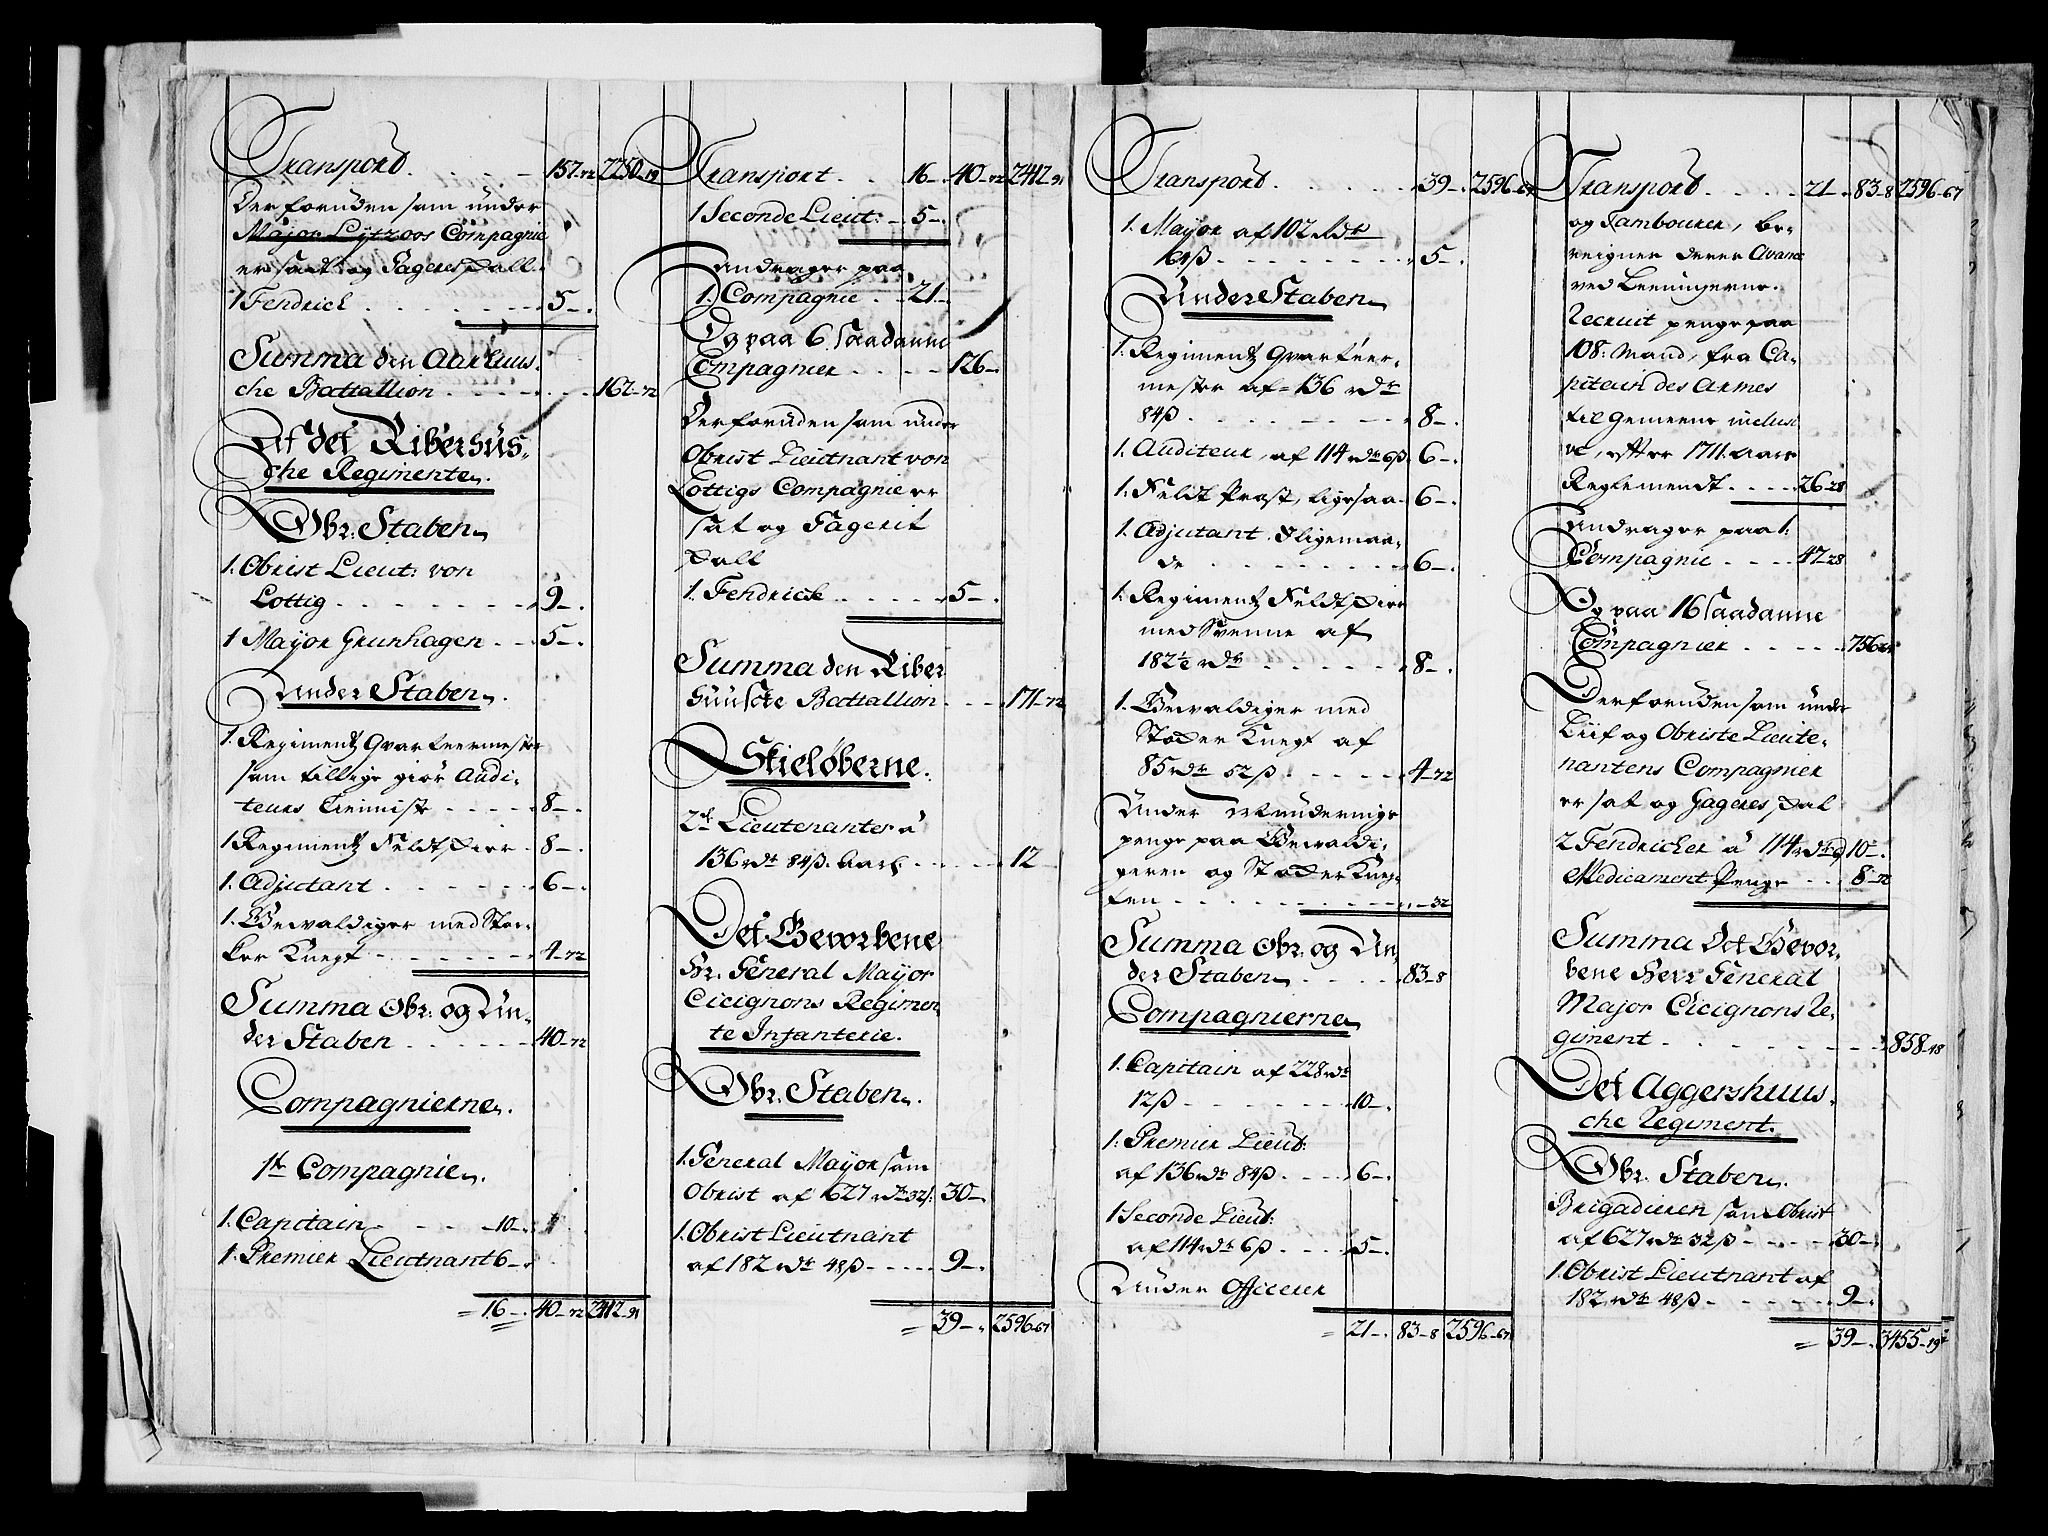 Transpord. 157-72 2250-19
Derforuden som under
Major Lytzoos Compagnie
er sadt og Gageres pall.
1 Fendrich 5-.
Summa den Aarhuus
che Battallion 162-72
Af det Riberhus-
che Regimente.
Obr: Staben
1. Obrist Lieut: von
Lottig 9-.
1 Mayor Grunhagen 5-.
Under Staben.
1. Regimentz Qvarteermester
som tillige giør Audi-
teurs Tienniste 8-.
1 Regimentz Feldtskier 8-.
1. Adjutant 6-.
1. Gevaldiger med Stoc-
ker Knegt 4-72
Summa Obr: og Un-
der Staben 40-72
Compagnierne.
1te Compagnie.
1. Capitain 10-.
1. Premier Lieutnant 6-.
= 16-. 40-72 2412-91
Transport 16-. 40-72 2412-91
1 Seconde Lieut: 5-.
Andrager paa
1. Compagnie 21-.
Og paa 6 saadanne
Compagnier 126-.
Derforuden som under
Obrist Lieutnant von
Lottigs Compagnie er
sat og Gagerit
pall
1. Fendrich 5-.
Summa den Riber
huuske Battallion 171-72
Skieløberne.
2de Lieutenanter a
136 rdr 84ß. aarl. 12
Det Gevorbene
Hr. General Mayor
Cicignons Regimen-
te Infanterie.
Obr: Staben.
1. General Mayor som
Obrist af 627 rdr 32ß: 30-.
1. Obrist Lieutnant
af 182 rdr 48ß 9-.
= 39-. 2596-67
Transpord 39-. 2596-67
1. Mayor af 102 rdr
64ß 5-.
Under Staben
1. Regimentz Qvarteer-
mester af 136 rdr
84ß 8-.
1. Auditeur, af 114 rdr 6ß. 6-.
1. Feldt Prest, ligesaa 6-.
1. Adjutant. Sligemaa-
de 6-.
1. Regimentz Feldtskier
med Svenne af
182½ rdr 8-.
1. Gevaldiger med
Stocker Knegt af
85 rdr 52ß 4-72
Under
penge paa Gevaldi-
geren og Stocker Kneg-
ten -32
Summa Obr: og Un
der Staben 83-8
Compagnierne
1. Capitain af 228 rdr
12ß 10-.
1. Premier Lieut:
af 136 rdr 84ß 6-.
1 Seconde Lieut:
af 114 rdr 6ß 5-.
Under Officerer
= 21-. 83-8 2596-67
Transpord 21-. 83-8 2596-67
og Tambourer, be-
reigner derer Avance
ved Leeningerne.
Recruit penge paa
108: Mand, fra Ca-
pitain des Armes
til Gemeene inclusi
ve, efter 1711. Aars
Reglemendt 26-28
Andrager paa 1.
Compagnie 47-28
Og paa 16 saadanne
Compagnier 756
Derforuden som under
Liif og Obriste Lieute-
nantens Compagnier
er sat og Gageres pal
2 Fendricher a 114 rdr 10-.
Medicament Penge 8-72
Summa Det Gevor-
bene Herr General
Major Cicignons Re-
giment 858-48
Det Aggershuus-
che Regiment.
Obr. Staben.
Brigadieren som Obrist
af 627 rdr 32ß 30-.
1. Obrist Lieutnant af
182 rdr 48ß 9-.
= 39-. 3455-19